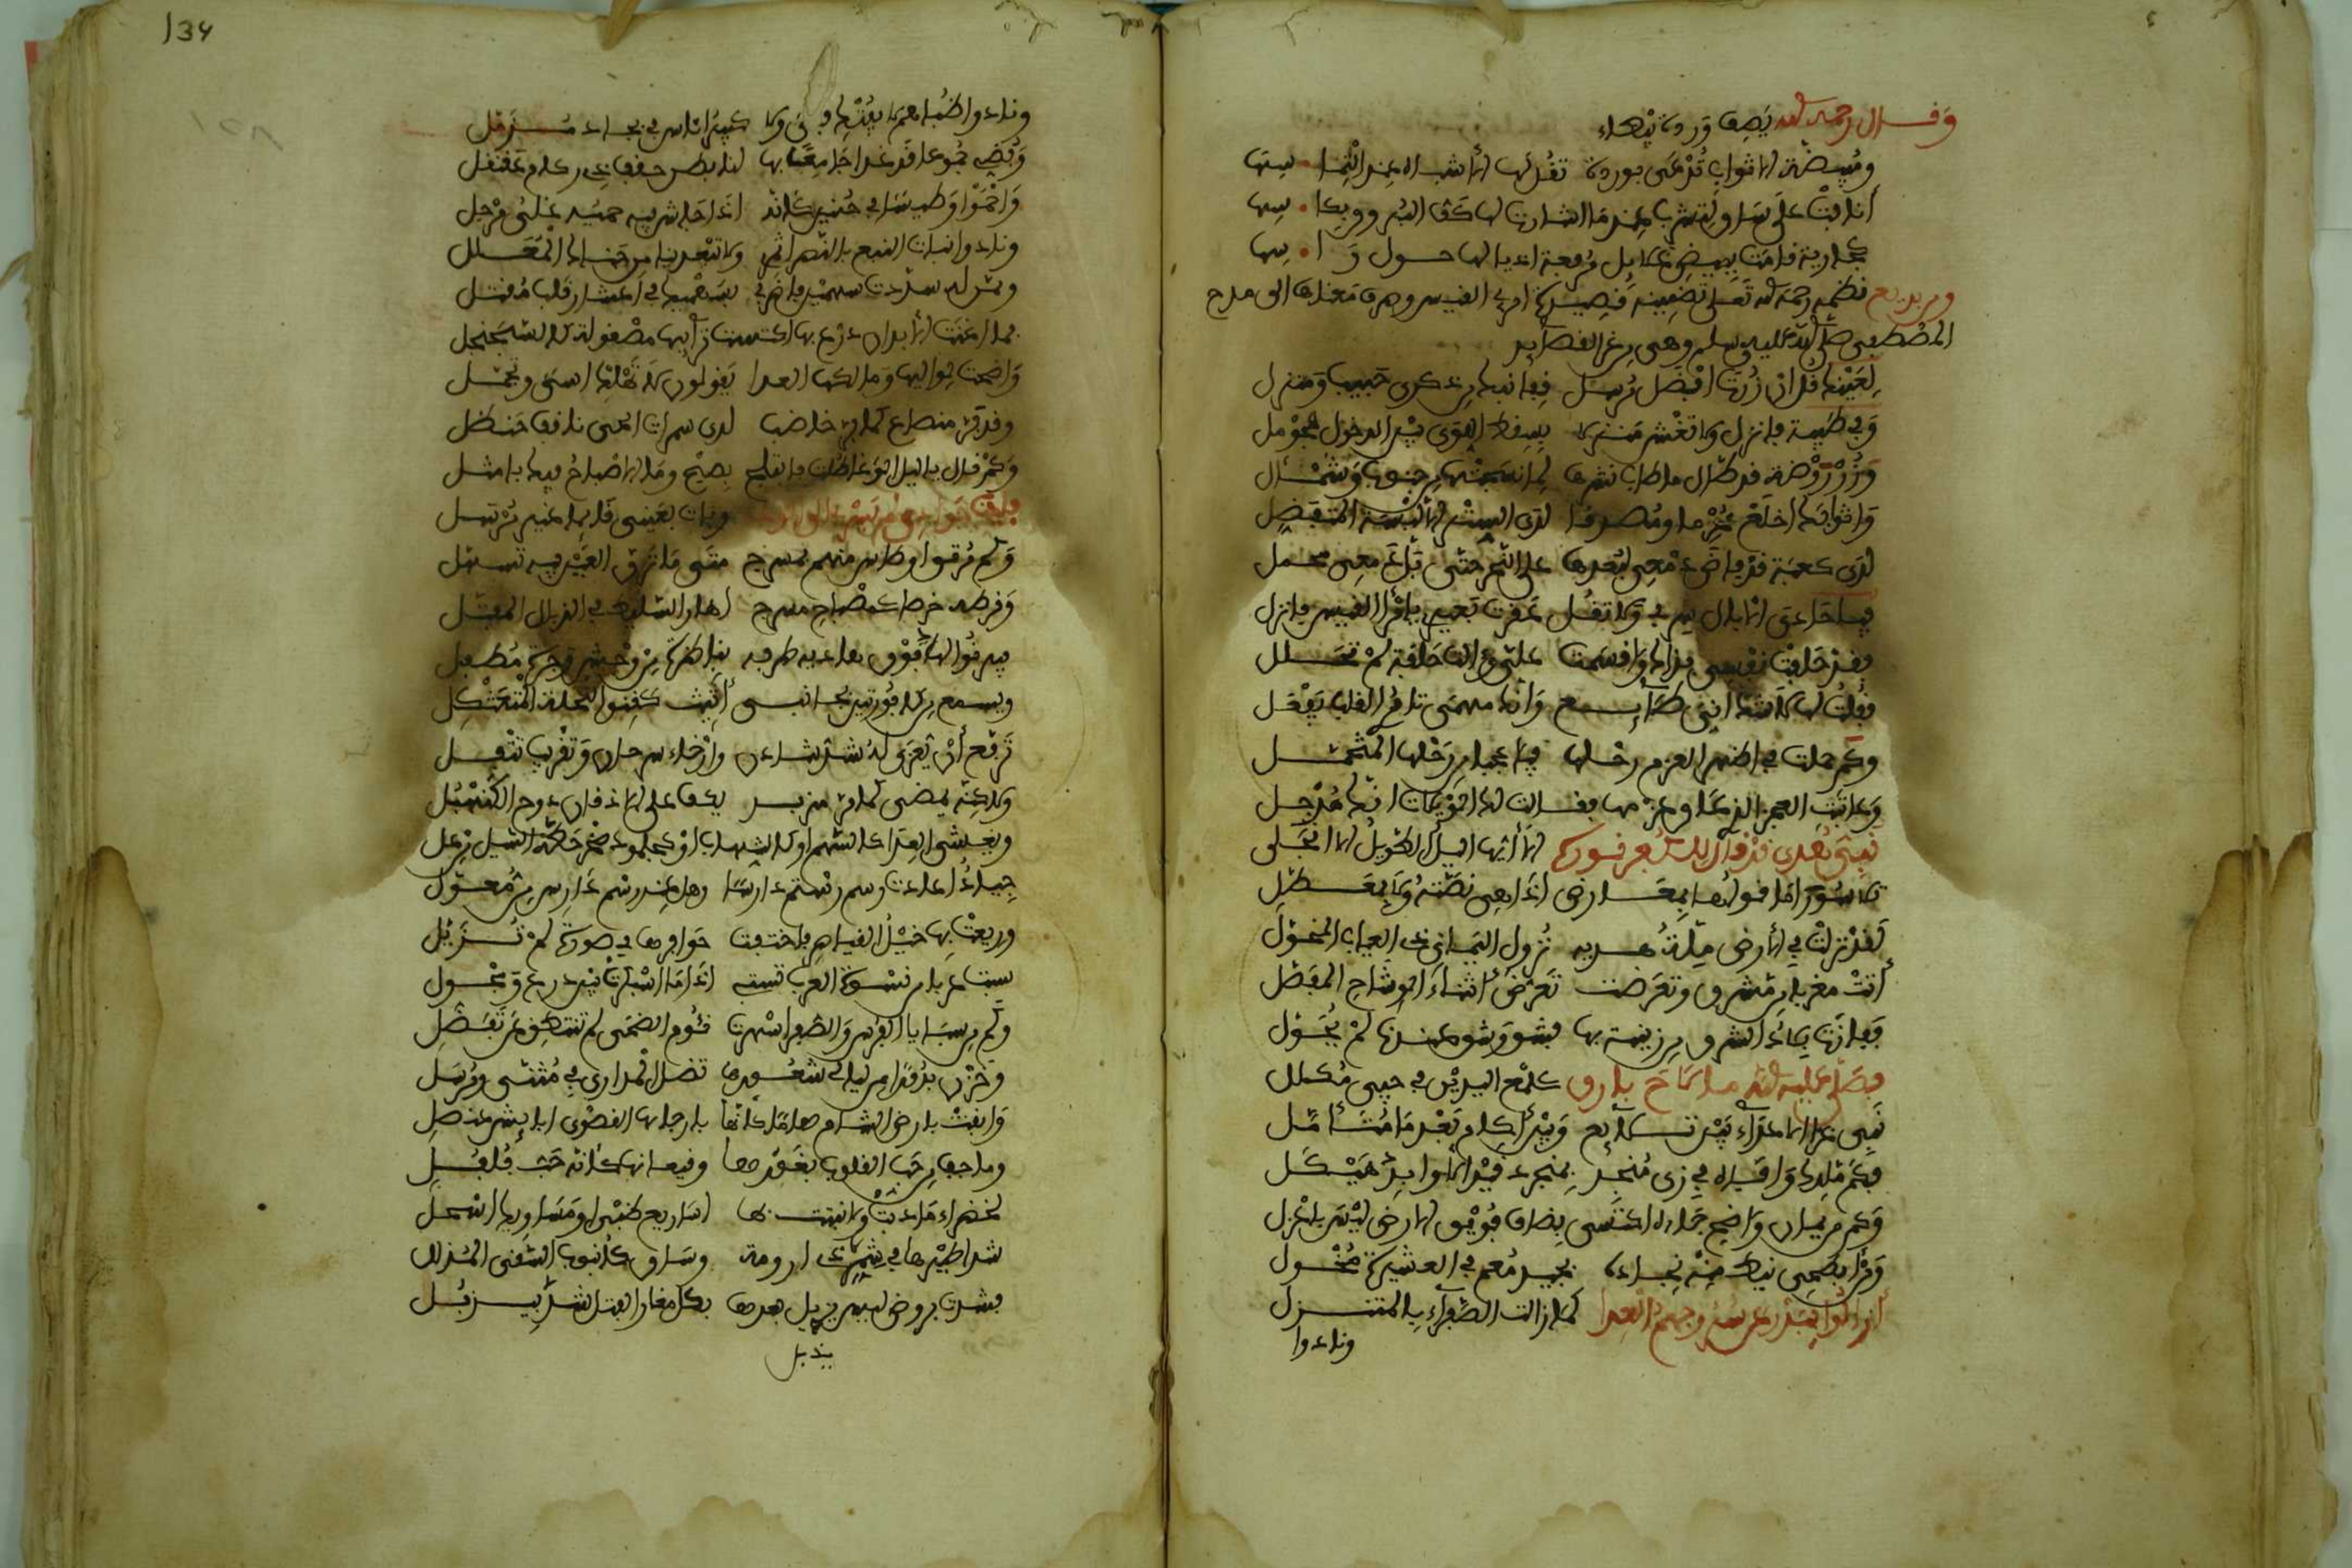 وقال رحمه الله يصف وردة بيضاء
ومبيضة الاثواب تزهى بوردة تقل لها الأشباه عند التما • سها
أنافت على ساق لتشرب عندما اشارت لها كف البرو وبكا • سها
كجارية قامت ببيض غلايل مرفعة اذيالها حول را • سها
ومن بديع نظمه رحمه الله تعلى تضمينه قصيدة امرئ القيس وصرف معناها الى مدح
المصطفى صلى الله عليه وسلم وهي من غر القصايد
لعينيك قل ان زرت افضل مرسل قفا نبك من ذكرى حبيب ومنزل
وفي طيبة فانزل ولا تغش منزلا بسقط اللوى بين الدخول فحومل
وزر روضة قد طال ما طاب نشرها لما نسجتها من جنوب وشمأل
واثوابك اخلع محرما ومصدقا لدى الستر إلا لبسة المتفضل
لدى كعبة قد فاض دمعي لبعدها على النحر حتى بل دمعي محمل
فيا حادي الابال سر بي ولا تقل عقرت بعيري يا امرأ القيس فانزل
فقد حلفت نفسي بذاك واقسمت علي وءالت حلفة لم تحلل
فقلت لها لا شك اني طايع وأنك مهمى تامري القلب يفعل
وكم حملت في اظهر العزم رحلها فيا عجبا من رحلها المتحمل
وعاتبت العجز الذي عاق عزمها فقالت لك الويلات انك مرجل
نبي هدى قد قال للكفر نوره ألا أيها الليل الطويل الا انجلى
تلا سورا ما قولها بمعارض اذا هي نصته ولا بمعطل
لقد نزلت في الأرض ملة هديه نزول اليماني ذي العياب المخول
أتت مغربا من مشرق وتعرضت تعرض أثناء الوشاح المفصل
ففازت بلاد الشرق من زينة بها بشق وشق عندنا لم يحول
فصلى عليه الله ما لاح بارق كلمع اليدين في حبي مكلل
نبي غزا الاعداء بين تلايع وبين أكام بعد ما متأمل
فكم ملك وافاه في زي منجد بمنجرد قيد الاوابد هيكل
وكم من يمان واضح جاءه اكتسى بضاف فويق الارض ليس باعزل
ومن ابطحي نيط منه نجاده بجيد معم في العشيرة مخول
أزالوا ببدر عن سروجهم العدا كما زالت الصفواء بالمتنزل
ونادوا
134
ونادوا ظباهم لا يفتك فتى ولا كبير اناس في بجاد مزمل
وفضي جموعا قد غدا جامعا بها لنا بطن حقف ذي ركام عقنقل
واحموا وطيسا في حنين كانه اذا جاش فيه حميه غلي مرجل
ونادوا نبات النبع بالنصر اثمري ولا تبعدينا من جناك المعلل
وممن له سددت سهمين فاضربي بسهميك في اعشار قلب مقتل
فما اغنت الأبدان درع بها اكتست ترآيبها مصقولة كالسجنجل
واضحت لواليها ومالكها العدا يقولون لا تهلك اسى وتجمل
وقد فر منصاع كما فر خاضب لدى سمرات الحي ناقف حنظل
وكم قال يا ليل الوغا طلت فانبلج بصبح وما الاصباح فيك بامثل
فليت جوادي لم يسر بي الى الوغى وبات بعيني قايما غير مرسل
وكم مرتق اوطاس منهم بمسرج متى ما ترق العين فيه تسهل
وقرطه خرصا كمصباح مسرج اهان السليط في الذبال المفتل
فيرنوا لهاد فوق هاديه طرفه بناظرة من وحش وجرة مطفل
ويسمع من كافورتين بجانبى أثيث كقنو النخلة المتعثكل
ترفع أن يعزى له شد شادن وإرخاء سرحان وتقريب تتفل
ولكنه يمضي كما مر مزبد يكب على الاذقان دوح الكنهبل
ويغشى العدا كالسهم او كالشهاب او كجلمود صخر حطه السيل من عل
جياد اعادت رسم رستم دارسا وهل عند رسم دارس من معول
وريعت بها خيل القياصر فاختفت جواحرها في صرة لم تزيل
سبت عربا من نسوة العرب تستبي اذا ما اسبكرت بين درع ومجول
وكم من سبايا الفرس والصفر اسهرت نئوم الضحى لم تنتطق عن تفضل
وحزن بدورا من ليالي شعورها تضل المداري في مثنى ومرسل
وابقت بارض الشام هاما كأنها بارجايها القصوى انابيش عنصل
وما جف من حب القلوب بغورها وقيعانها كأنه حب فلفل
لخضراء ما دبت ولا نبتت بها اساريع ظبي او مساويك اسحل
شدا طيرها في مثمر ذي ارومة وساق كأنبوب السقي المذلل
فشدت بروض ليس يذبل بعدها بكل مغار الفتل شدت بيذبل
يذبل